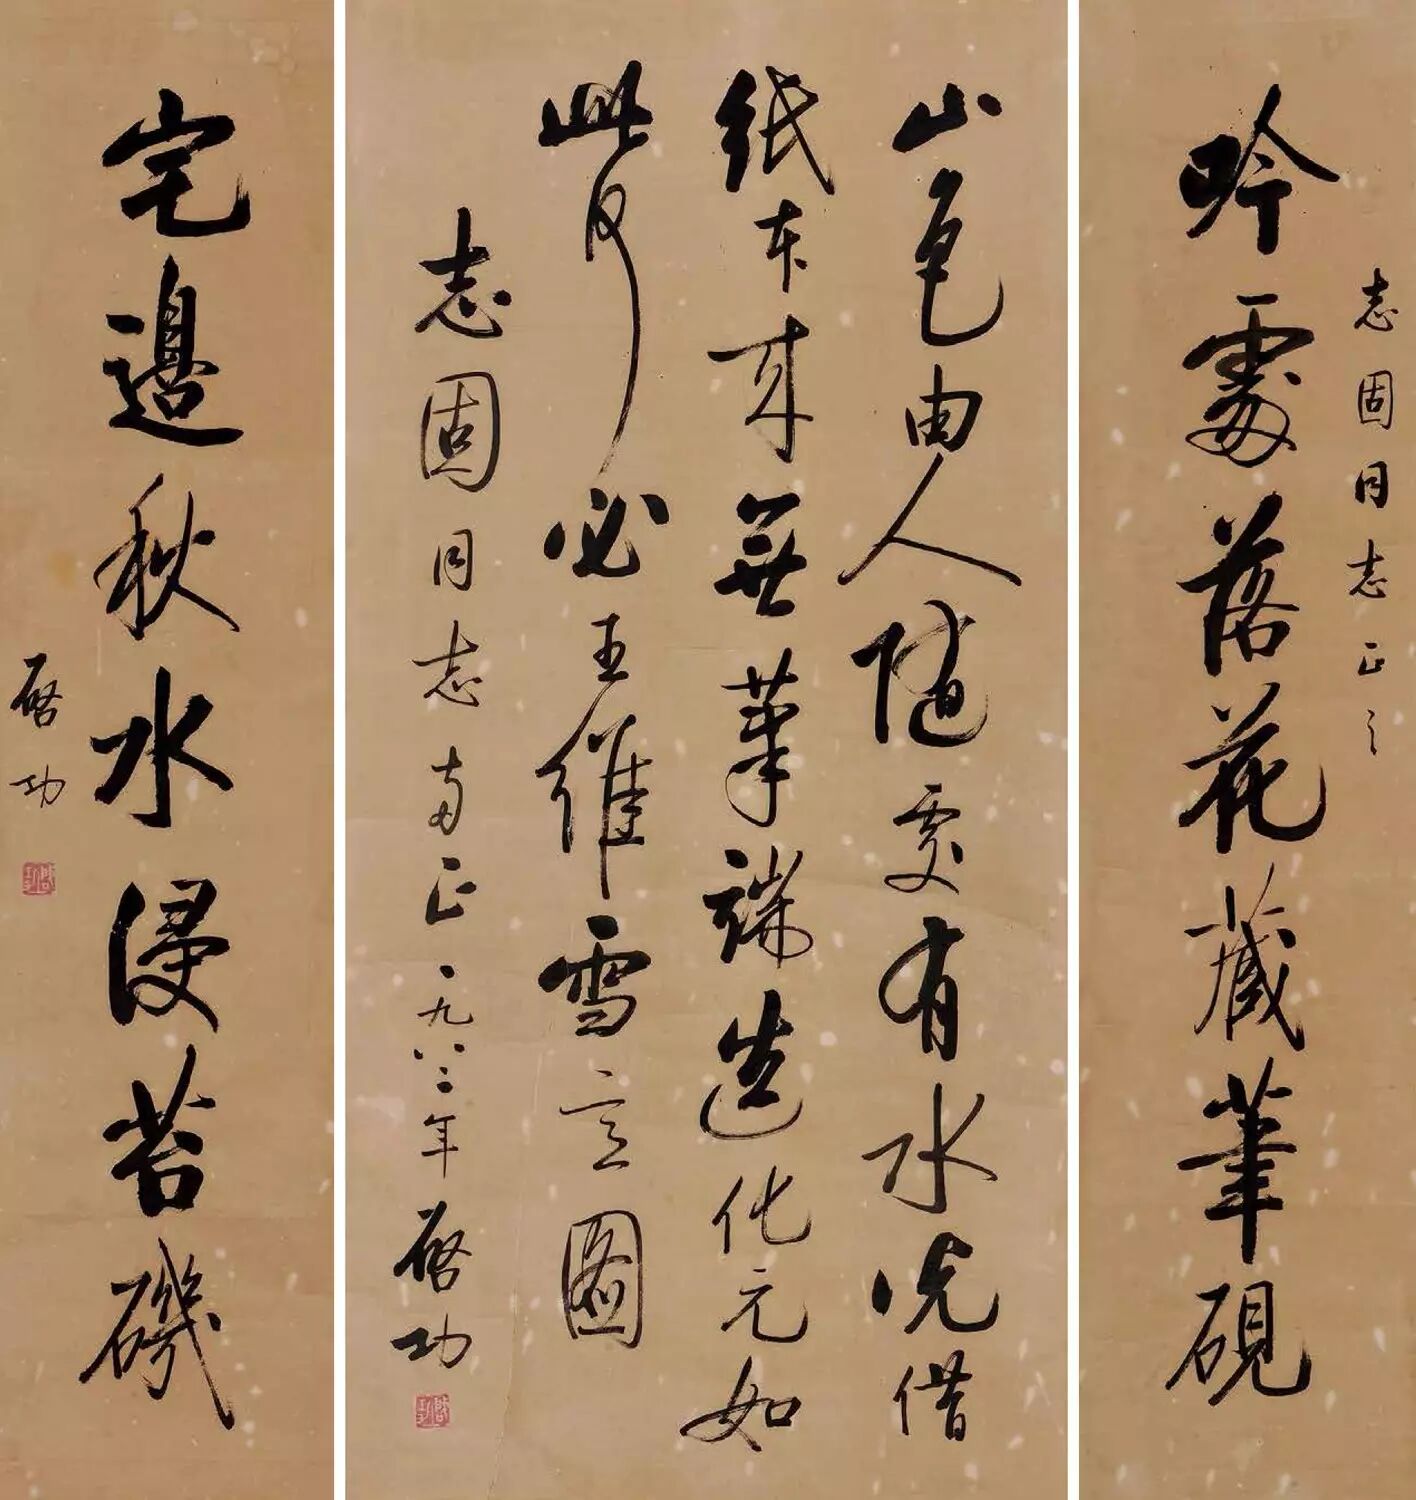 志固同志正之
吟處落花藏筆硯
山色由人随處有水光借
紙本來無筆端造化元如
此何必王維雪意圖
志固同志两正一九八二年啓功
宅邊秋水浸苔磯
啓功